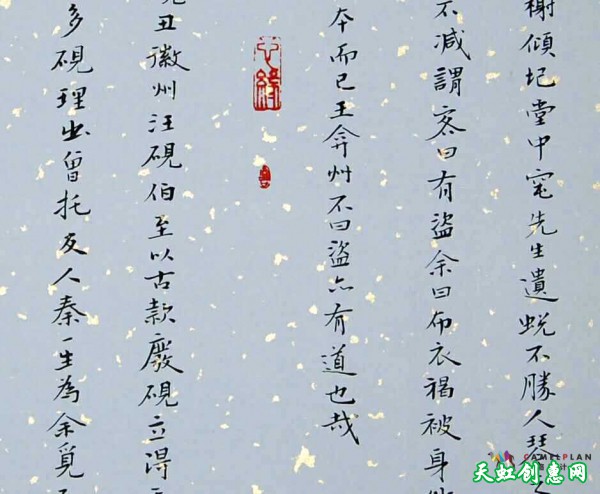 榭傾圮堂中窀先生遺蛻不勝人琴
不減謂客曰有盜余曰布衣褐被身
本而已王弇州不曰盜亦有道也哉
硯丑徽州汪硯伯至以古款廢硯立得
多硯理出曾托友人秦一生為余覓
CAMELPLAN
天虹创惠网